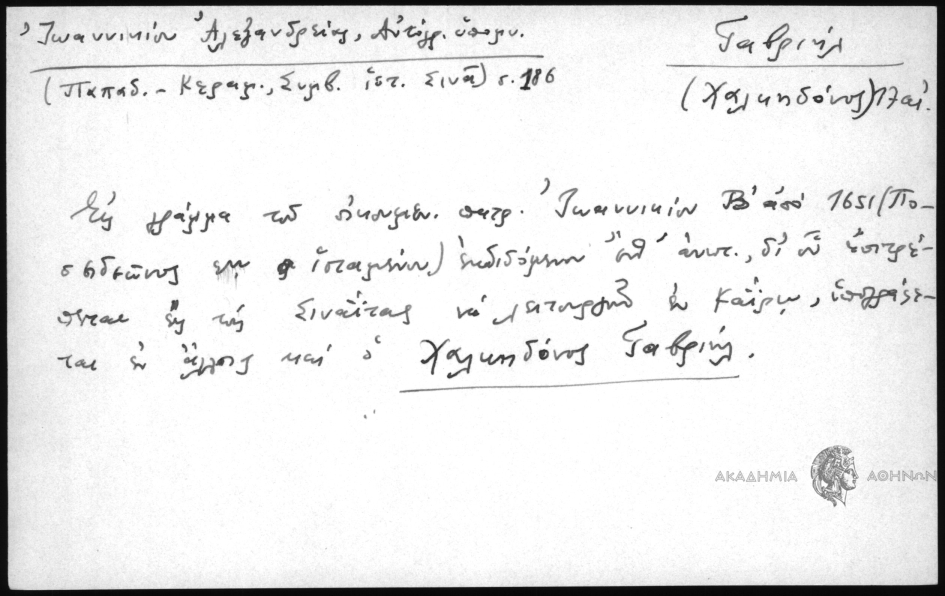 Ἰωαννικίου Ἀλεξανδρείας, Αὐτόγρ. ὑπομν.
(Παπαδ.-Κεραμ., Συμβ. ἱστ. Σινᾶ) σ. 186
Γαβριήλ
(Χαλκηδόνος) 17 αἰ.
Εἰς γράμμα τοῦ οἰκουμεν. πατρ. Ἰωαννικίου Β' ἀπὸ 1651 (Πο-
σειδεῶνος ἱσταμένου) ἐκδιδόμενον ὑπ' ἀνωτ., δι' οὗ ἐπιτρέ-
πεται εἰς τοὺς Σιναΐτας νὰ λειτουργοῦν ἐν Καΐρῳ, ὑπογράφε-
ται ἐν ἄλλοις καὶ ὁ Χαλκηδόνος Γαβριήλ.
ΑΚΑΔΗΜΙΑ ΑΘΗΝΩΝ